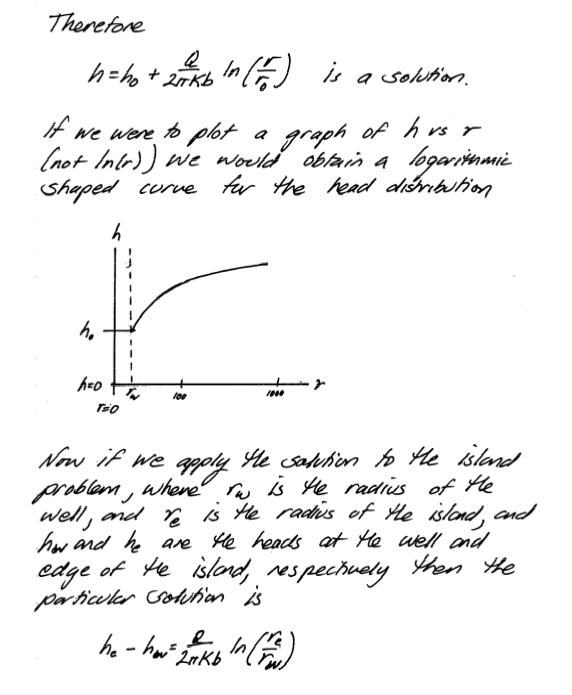 Therefore
h = h₀ + Q/2πKb ln(r/r₀) is a solution.
If we were to plot a graph of h vs r
(not ln(r)) we would obtain a logarithmic
shaped curve for the head distribution
h
h₀
h=0
r=0
r_w
100
1000
r
Now if we apply the solution to the island
problem, where r_w is the radius of the
well, and r_e is the radius of the island, and
h_w and h_e are the heads at the well and
edge of the island, respectively then the
particular solution is
h_e - h_w = Q/2πKb ln(r_e/r_w)